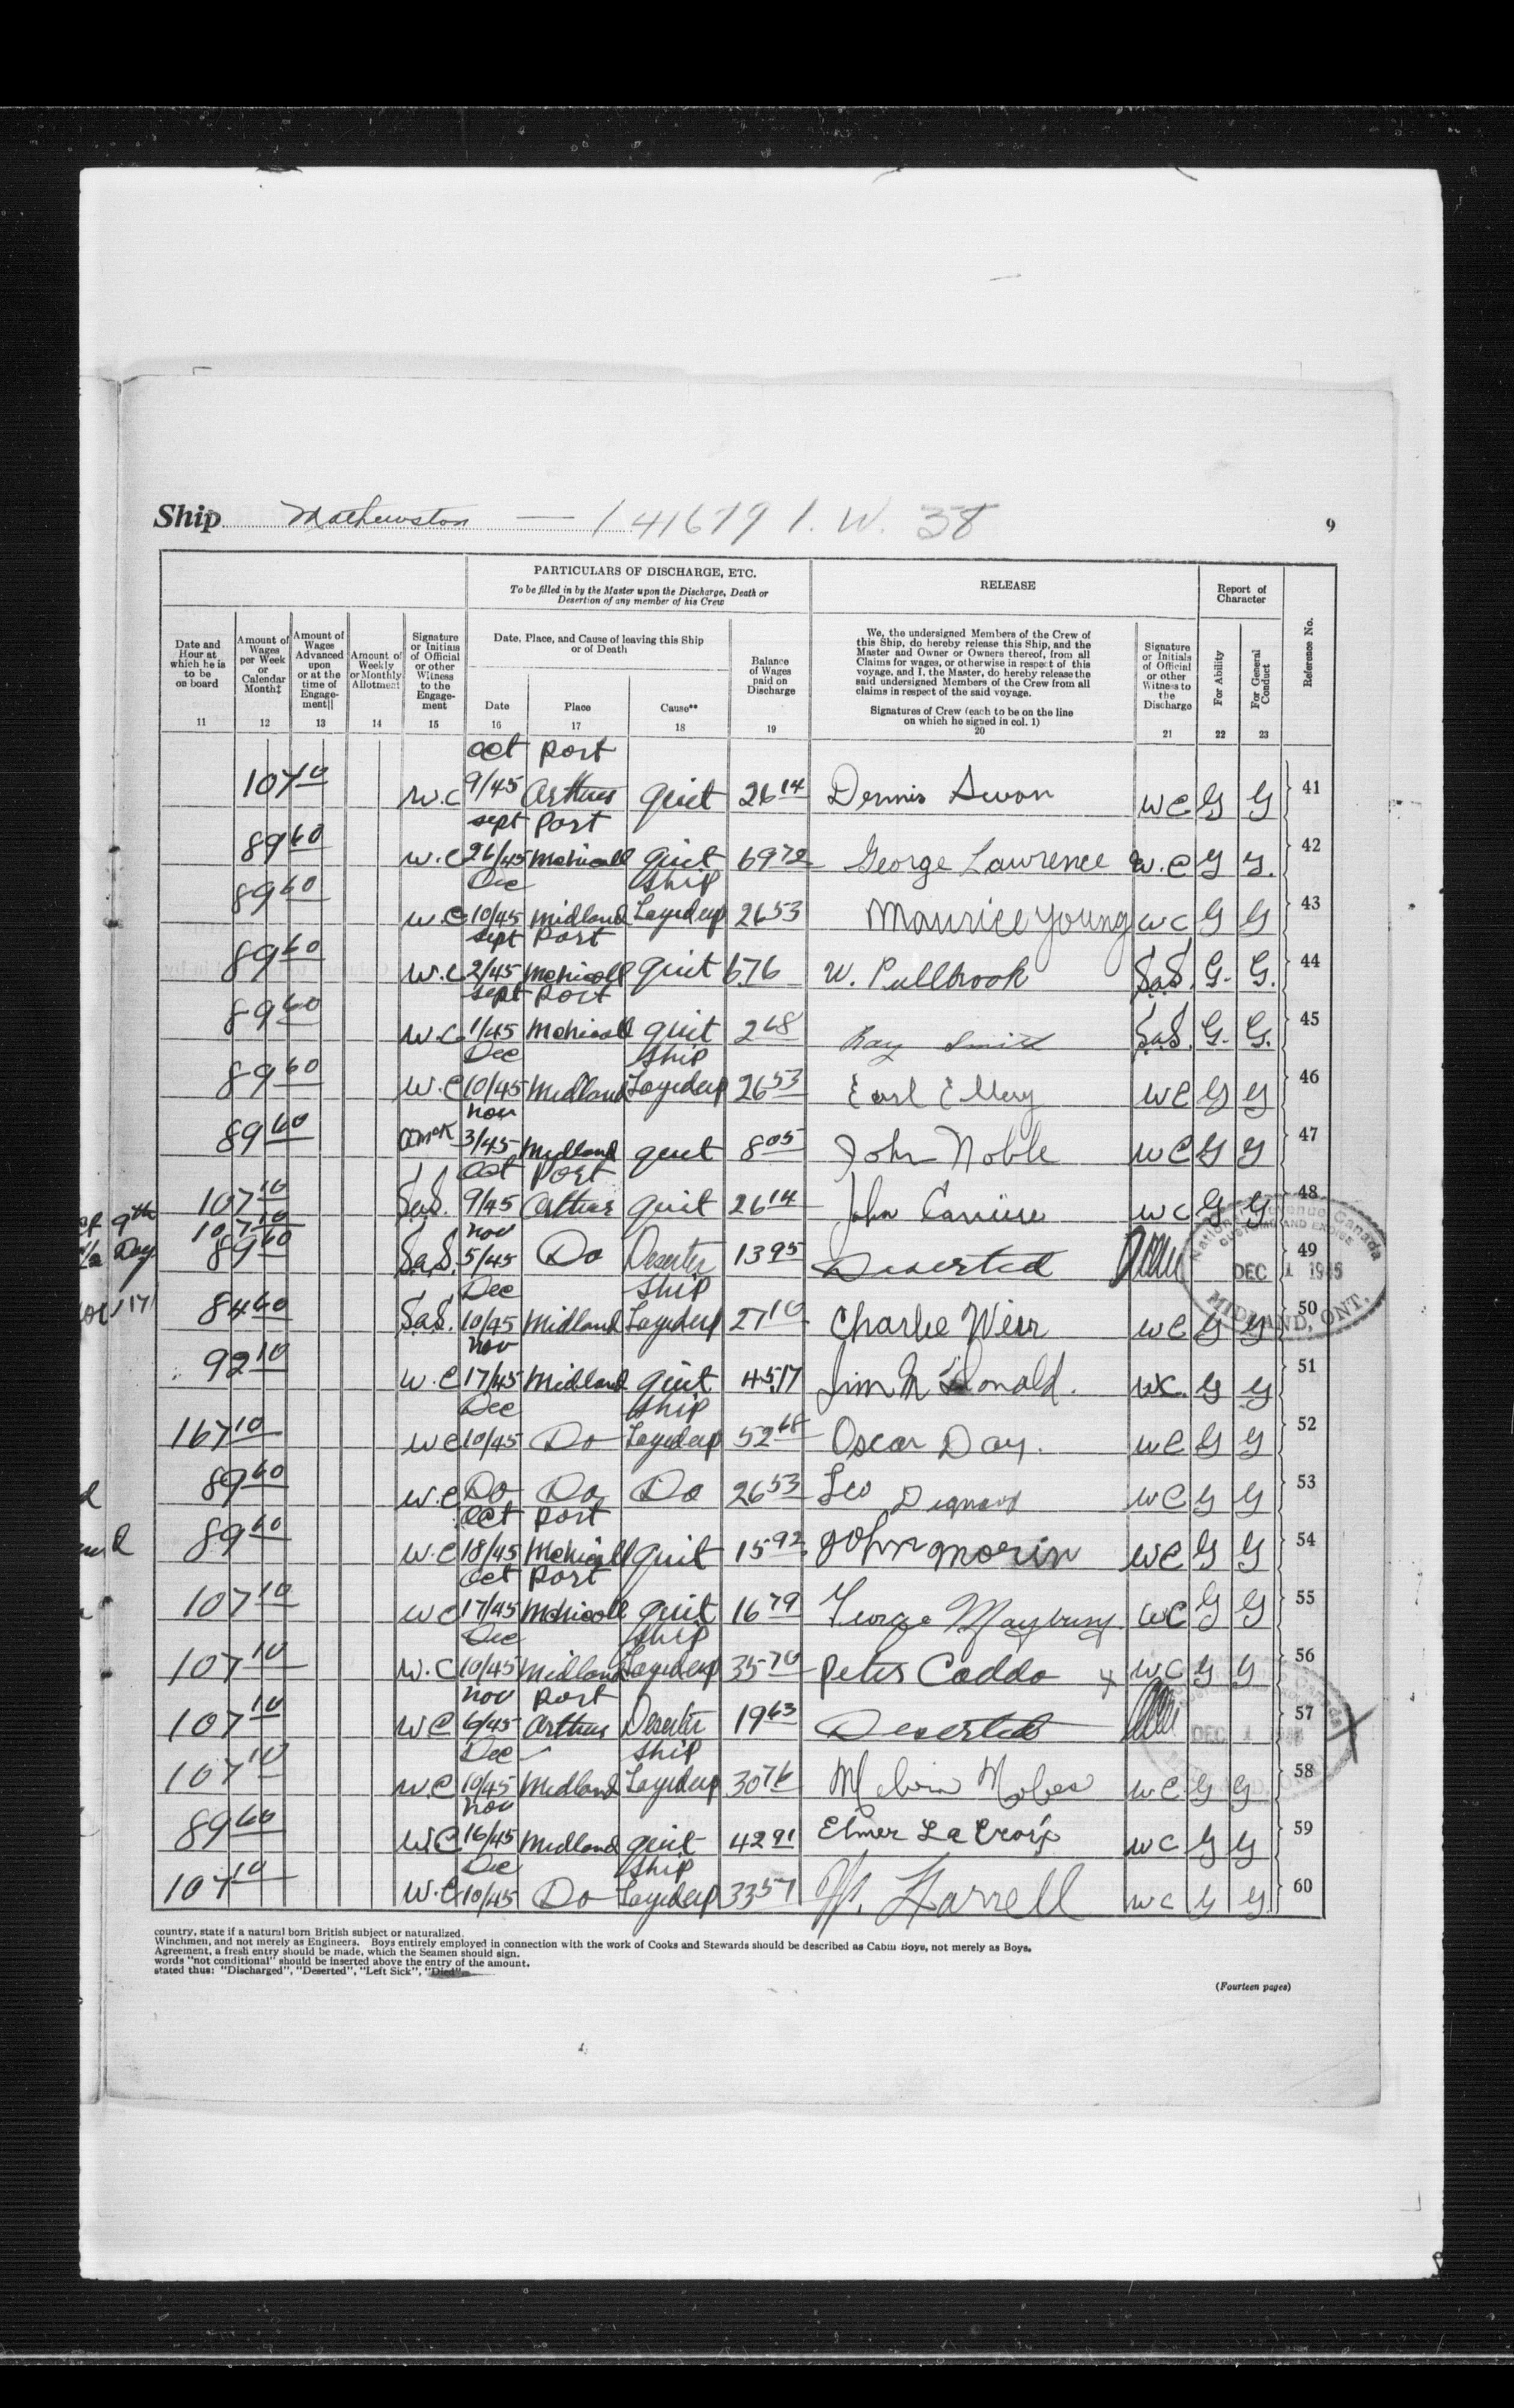 Ship Mathewston — 141679 I. W. 38
9
PARTICULARS OF DISCHARGE, ETC.
To be filled in by the Master upon the Discharge, Death or
Desertion of any member of his Crew
RELEASE
Report of
Character
Reference No.
Date and
Hour at
which he is
to be
on board
11
Amount of
Wages
per Week
or
Calendar
Month‡
12
Amount of
Wages
Advanced
upon
or at the
time of
Engage-
ment||
13
Amount of
Weekly
or Monthly
Allotment
14
Signature
or Initials
of Official
or other
Witness
to the
Engage-
ment
15
Date, Place, and Cause of leaving this Ship
or of Death
Date
16
Place
17
Cause**
18
Balance
of Wages
paid on
Discharge
19
We, the undersigned Members of the Crew of
this Ship, do hereby release this Ship, and the
Master and Owner or Owners thereof, from all
Claims for wages, or otherwise in respect of this
voyage, and I, the Master, do hereby release the
said undersigned Members of the Crew from all
claims in respect of the said voyage.
Signatures of Crew (each to be on the line
on which he signed in col. 1)
20
Signature
or Initials
of Official
or other
Witness to
the
Discharge
21
For Ability
22
For General
Conduct
23
Oct Port
107 10 W.C 9/45 Arthur quit 26 14 Dennis Swon WC G G 41
Sept Port
89 60 W.C 26/45 McNicoll quit 69 72 George Lawrence W.C G G. 42
Dec Ship
89 60 W.C 10/45 Midland Layedup 26 53 Maurice Young WC G G 43
Sept Port
89 60 W.C 2/45 McNicoll quit 6 76 W. Pullbrook S.a.S. G. G. 44
Sept Port
89 60 W.C. 1/45 McNicoll quit 2 68 Ray Smith S.a.S. G. G. 45
Dec Ship
89 60 W.C 10/45 Midland Layedup 26 53 Earl Ellery WC G G 46
Nov
89 60 3/45 Midland quit 8 05 John Noble WC G G 47
Oct Port
107 10 S.a.S. 9/45 Arthur quit 26 14 John Carriere WC G G 48
107 10 Nov
89 60 S.a.S. 5/45 Do Deserter 13 95 Deserted 49
Dec Ship
84 60 S.a.S. 10/45 Midland Layedup 27 10 Charlie Weir WC G G 50
Nov
92 10 W.C 17/45 Midland quit 45 17 Jim McDonald. WC. G G 51
Dec Ship
167 10 WC 10/45 Do Layedup 52 68 Oscar Day. WC G G 52
89 60 W.C Do Do Do 26 53 Leo WC G G 53
Oct Port
89 60 W.C 18/45 McNicoll quit 15 92 John Morin WC G G 54
Oct Port
107 10 WC 17/45 McNicoll quit 16 79 George Maybury WC G G 55
Dec Ship
107 10 W.C 10/45 Midland Layedup 35 70 Peter Coddo x WC G G 56
Nov Port
107 10 WC 6/45 Arthur Deserter 19 63 Deserted 57
Dec Ship
107 10 W.C 10/45 Midland Layedup 30 76 Melvin WC G G 58
Nov
89 60 W.C 16/45 Midland quit 42 91 Elmer La Croix WC G G 59
Dec Ship
107 10 W.C. 10/45 Do Layedup 33 57 Farrell WC G G 60
National Revenue Canada
CUSTOMS AND EXCISE
DEC 1 1945
MIDLAND, ONT.
DEC 1
9th
Day
country, state if a natural born British subject or naturalized.
Winchmen, and not merely as Engineers. Boys entirely employed in connection with the work of Cooks and Stewards should be described as Cabin Boys, not merely as Boys.
Agreement, a fresh entry should be made, which the Seamen should sign.
words "not conditional" should be inserted above the entry of the amount.
stated thus: "Discharged", "Deserted", "Left Sick", "Died".
(Fourteen pages)